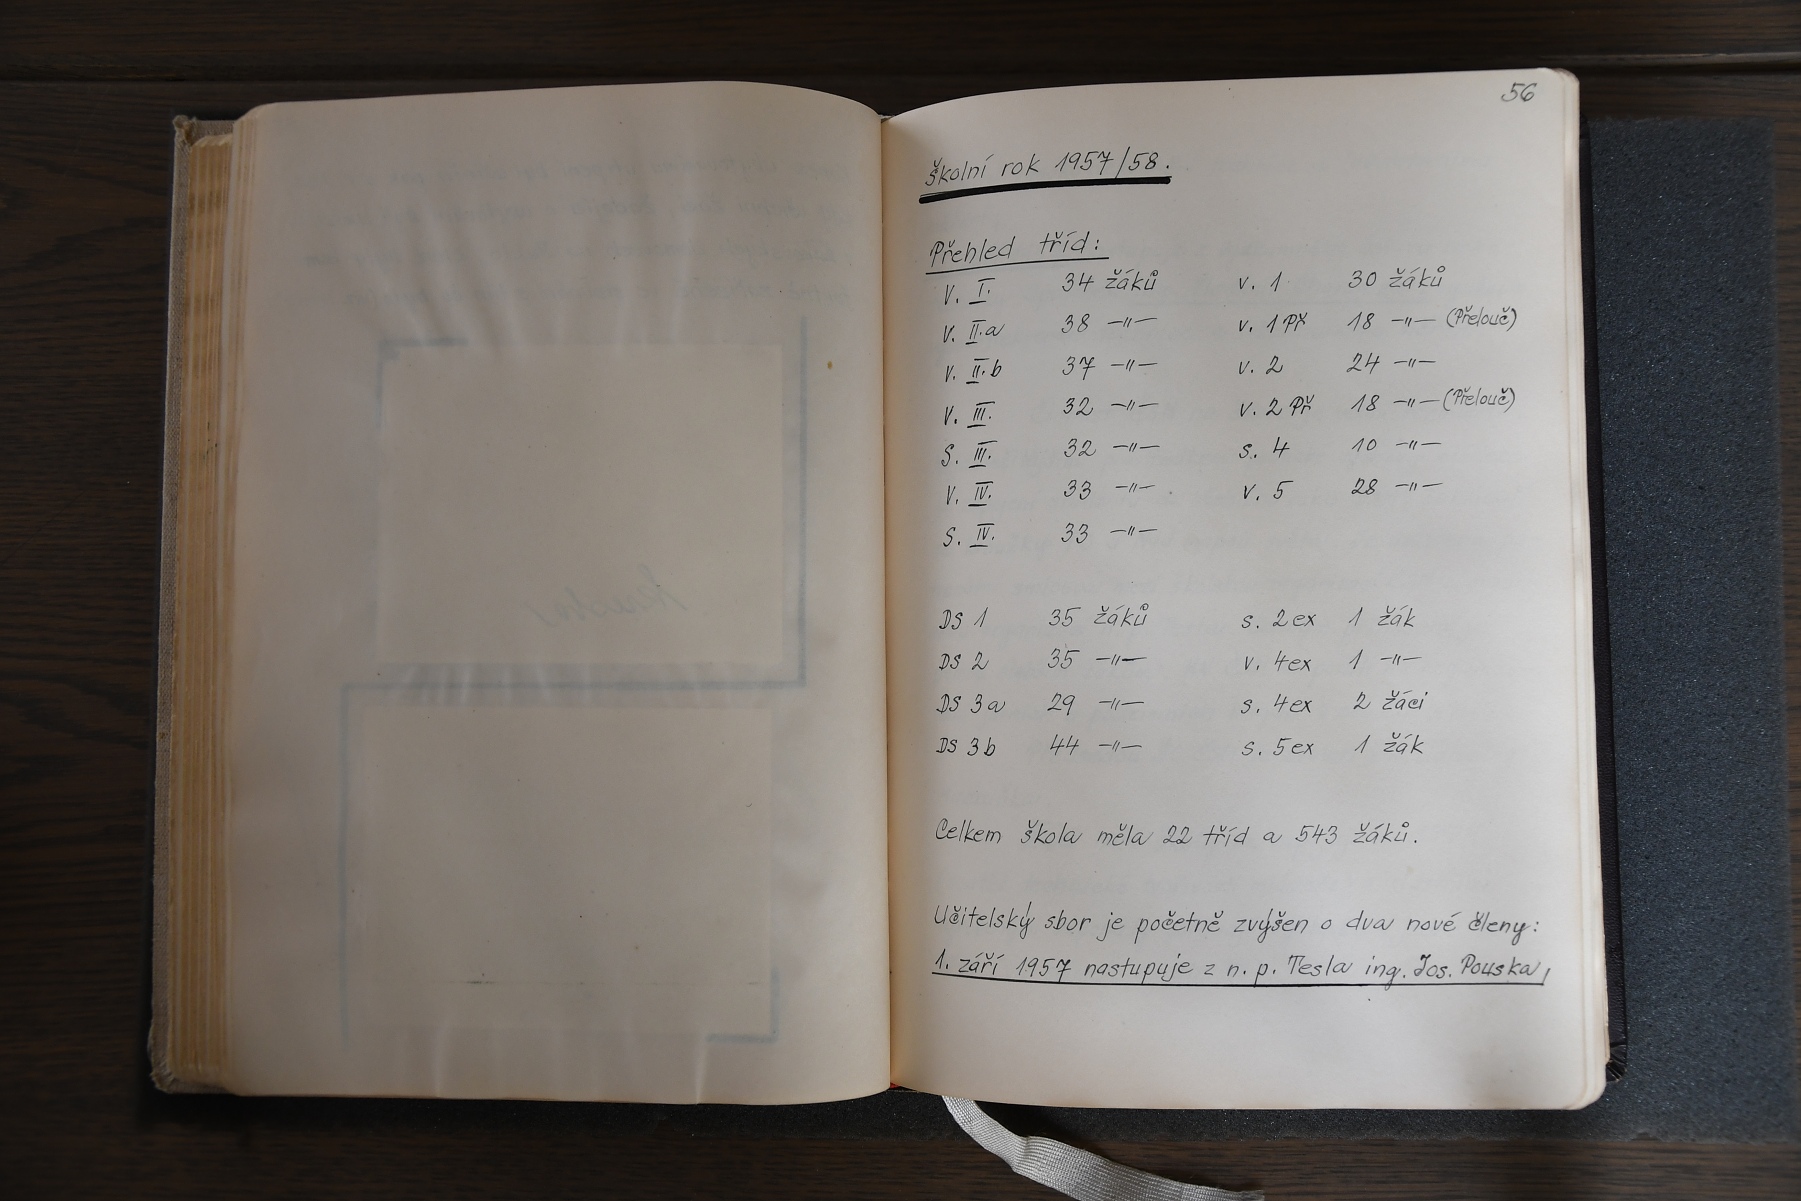 56
Školní rok 1957/58.
Přehled tříd:
V. I. 34 žáků v. 1 30 žáků
V. II.a 38 -"- v. 1 Př 18 -"- (Přelouč)
V. II.b 37 -"- v. 2 24 -"-
V. III. 32 -"- v. 2 Př 18 -"- (Přelouč)
S. III. 32 -"- s. 4 10 -"-
V. IV. 33 -"- v. 5 28 -"-
S. IV. 33 -"-
DS 1 35 žáků s. 2ex 1 žák
DS 2 35 -"- v. 4ex 1 -"-
DS 3a 29 -"- s. 4ex 2 žáci
DS 3b 44 -"- s. 5ex 1 žák
Celkem škola měla 22 tříd a 543 žáků.
Učitelský sbor je početně zvýšen o dva nové členy:
1. září 1957 nastupuje z n. p. Tesla ing. Jos. Pouska,